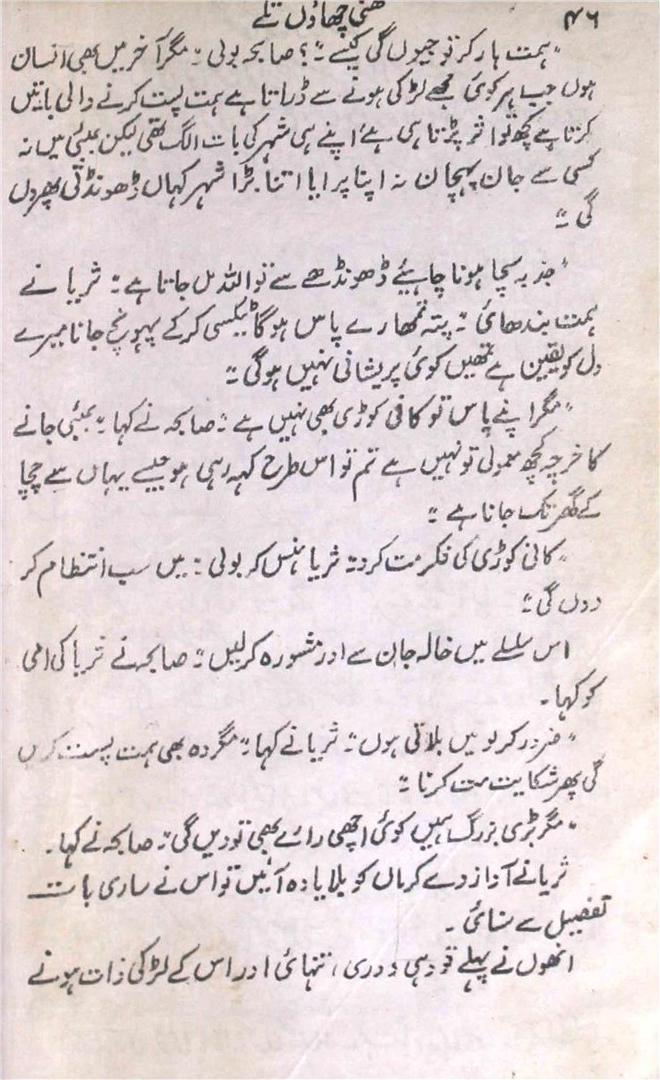 ۴۶
گھنی چھاؤں تلے
”ہمت ہار کر تو جیوں گی کیسے“؟ صابحہ بولی ”مگر آخر میں بھی انسان
ہوں جب ہر کوئی مجھے لڑکی ہونے سے ڈراتا ہے ہمت پست کرنے والی باتیں
کرتا ہے کچھ تو اثر پڑتا ہی ہے اپنے ہی شہر کی بات الگ تھی لیکن بمبئی میں نہ
کسی سے جان پہچان نہ اپنا پرایا اتنا بڑا شہر کہاں ڈھونڈتی پھروں
گی“
”جذبہ سچا ہونا چاہیئے ڈھونڈھے سے تو اللہ مل جاتا ہے“ ثریا نے
ہمت بندھائی ”پتہ تمھارے پاس ہوگا ٹیکسی کر کے پہونچ جانا میرے
دل کو یقین ہے تمھیں کوئی پریشانی نہیں ہوگی“
”مگر اپنے پاس تو کافی کوڑی بھی نہیں ہے“ صابحہ نے کہا ”بمبئی جانے
کا خرچہ کچھ معمولی تو نہیں ہے تم تو اس طرح کہہ رہی ہو جیسے یہاں سے چچا
کے گھر تک جانا ہے“
”کانی کوڑی کی فکر مت کرو“ ثریا ہنس کر بولی ”میں سب انتظام کر
دوں گی“
اس سلسلے میں خالہ جان سے اور مشورہ کرلیں“ صابحہ نے ثریا کی امی
کو کہا۔
”ضرور کرلو میں بلاتی ہوں“ ثریا نے کہا ”مگر وہ بھی ہمت پست کریں
گی پھر شکایت مت کرنا“
”مگر بڑی بزرگ ہیں کوئی اچھی رائے بھی تو دیں گی“ صابحہ نے کہا۔
ثریا نے آواز دے کر ماں کو بلایا وہ آئیں تو اس نے ساری بات
تفصیل سے سنائی۔
انھوں نے پہلے تو وہی دوری، تنہائی اور اس کے لڑکی ذات ہونے